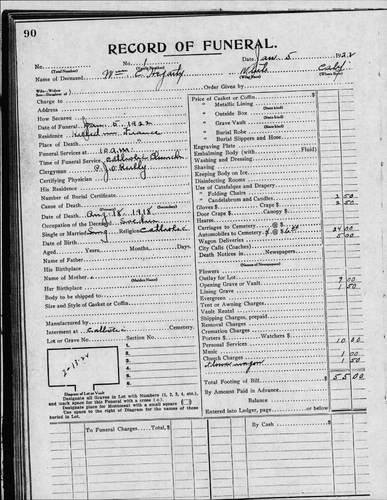 90
RECORD OF FUNERAL.
No. No. 1 Date Jan. 5 1922
(Total Number) (Yearly Number)
Name of Deceased Wm C. White Calif
Wife-Widow Son-Daughter of
Charge to Order Given by
Address
How Secured
Date of Funeral Jan. 5 1922
Residence Killed in France
Place of Death
Funeral Services at
Time of Funeral Service 10 a.m. Catholic Church
Clergyman P. J. O'Reilly
Certifying Physician
His Residence
Number of Burial Certificate
Cause of Death
Date of Death Aug. 18. 1918.
Occupation of the Deceased
Single or Married Sing Religion Catholic
Date of Birth
Aged Years Months, Days.
Name of Father
His Birthplace
Name of Mother
(Maiden Name)
Her Birthplace
Body to be shipped to
Size and Style of Casket or Coffin
Manufactured by
Interment at Catholic Cemetery.
Lot or Grave No. Section No.
No. 1
" 2
" 3
" 4
" 5
" 6
" 7
" 8
Diagram of Lot or Vault
Designate all Graves in Lot with Numbers (1, 2, 3, 4, etc.),
and mark space for this Funeral with a cross (+).
Designate place for Monument with a small square
Use space to right of Diagram for the names of those
buried in Lot.
Price of Casket or Coffin
" Metallic Lining
" Outside Box
" Grave Vault
" Burial Robe
" Burial Slippers and Hose
Engraving Plate
Embalming Body (with Fluid)
Washing and Dressing
Shaving
Keeping Body on Ice
Disinfecting Rooms
Use of Catafalque and Drapery
" Folding Chairs 2 50
" Candelabrum and Candles 2 50
Gloves $ Crape $
Door Crape $ Canopy $
Hearse
Carriages to Cemetery @ $ 24 00
Automobiles to Cemetery @ $ 5 00
Wagon Deliveries
City Calls (Coaches)
Death Notices in Newspapers
(Names of Newspapers)
Flowers
Outlay for Lot 9 00
Opening Grave or Vault 1 50
Lining Grave
Evergreen
Tent or Awning Charges
Vault Rental
Shipping Charges, prepaid
Removal Charges
Cremation Charges
Porters $ Watchers $
Personal Services 10 00
Music 1 00
Church Charges 1 50
Flower wagon
Total Footing of Bill $ 55 00
By Amount Paid in Advance
Balance
Entered into Ledger, page or below.
To Funeral Charges. Total $
By Cash $